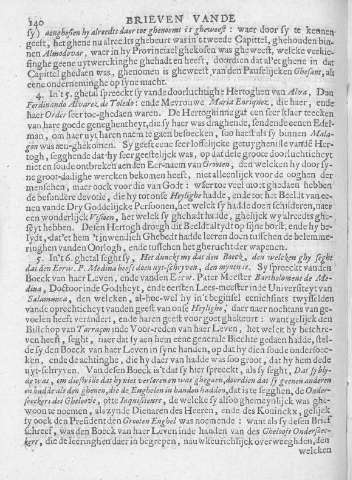 140 BRIEVEN VANDE
sy) aenghosen hy alreedts daer toe ghenomt is gheweest: waer door sy te kennen
geeft, het ghene nu alreedts ghebeurt was in 't tweede Capittel, ghehouden bin-
nen Almodovar, waer in hy Provinciael ghekosen was gheweest, welcke verkie-
singhe geene uytwerckinghe ghehadt en heeft, doordien dat al'et ghene in dat
Capittel ghedaen was, ghenomen is gheweest van den Pauselijcken Ghesant, als
eene onderneminghe op syne macht.
4. In 't 15. ghetal spreeckt sy van de doorluchtighe Hertoghen van Alva, Don
Ferdinando Alvarez de Toledo: ende Mevrouwe Maria Enriquez, die haer, ende
haer Order seer toe-ghedaen waren. De Hertoghinne gat een seer klaer teecken
van hare goede geneghentheyt, die sy haer was draghende, sendende eenen Edel-
man, om haer uyt haren naem te gaen besoecken, soo haest als sy binnen Mala-
gon was aen-ghekomen. Sy geeft eene seer loffelijcke getuyghenisse van de Her-
togh, segghende dat hy seer gheestelijck was, op dat dese groote doorluchticheyt
niet en soude ontbreken aen den Eer-naem van Grooten, die t welcken hy door sy-
ne groot-dadighe wercken bekomen heeft, niet alleenlijck voor de ooghen der
menschen, maer oock voor die van Godt: waer toe veel moet ghedaen hebben
de besondere devotie, die hy tot onse Heylighe hadde, ende tot het Beeldt van ee-
nen vande Dry Goddelijcke Persoonen, het welck sy hem dede schilderen, naer
een wonderlijck Visioen, het welck sy ghehadt hadde, ghelijck wy alreedts ghe-
seyt hebben. Desen Hertogh droegh dit Beeldt altydt op sijne borst, ende hy be-
lydt, dat'et hem 't inwendich Ghebedt hadde leeren doen tusschen de belemme-
ringhen van den Oorlogh, ende tusschen het gherucht der wapenen.
5. In 't 16. ghetal seght sy, Het dunckt my dat den Boeck, den welcken hy seght
dat den Eerw. P. Medina heeft doen uyt-schryven, den mynen is. Sy spreeckt van den
Boeck van haer Leven, ende van den Eerw. Pater Meester Bartholomeus de Me-
dina, Doctoor in de Godtheyt, ende eersten Lees-meester in de Universiteyt van
Salamanca, den welcken, al-hoe-wel hy in 't beginsel eenichsints twyffelden
van de oprechticheyt vanden geest van onse Heylighe, daer naer nochtans van ge-
voelen heeft verandert, ende haren geest voor goet ghekeurt: want gelijck den
Bisschop van Tarragon inde Voor-reden van haer Leven, het welck hy beschre-
ven heeft, seght, naer dat sy aen hem eene generale Biechte gedaen hadde, stel-
de sy den Boeck van haer Leven in syne handen, op dat hy dien soude ondersoe-
cken, ende de achtinghe, die hy daer van hadde was soo groot, dat hy hem dede
uyt-schryven. Van desen Boeck is 't dat sy hier spreeckt, als sy seght, Dat sy bly-
de was, om dies wille dat hy niet verloren en was ghegaen, doordien dat sy geenen anderen
en hadde als den ghenen, die de Engelen in handen hadden, dat is te segghen, de Onder-
soeckers des Gheloofs, ofte Inquisiteurs, de welcke sy alsoo ghemeynlijck was ghe-
woon te noemen, als zynde Dienaren des Heeren, ende des Konincks, gelijck
sy oock den President den Grooten Enghel was noemende: want als sy desen Brief
schreef, was den Boeck van haer Leven inde handen van des Gheloofs Ondersoec-
kers, die de leeringhen daer in begrepen, nauwkeurichlijck overweeghden, den
welcken